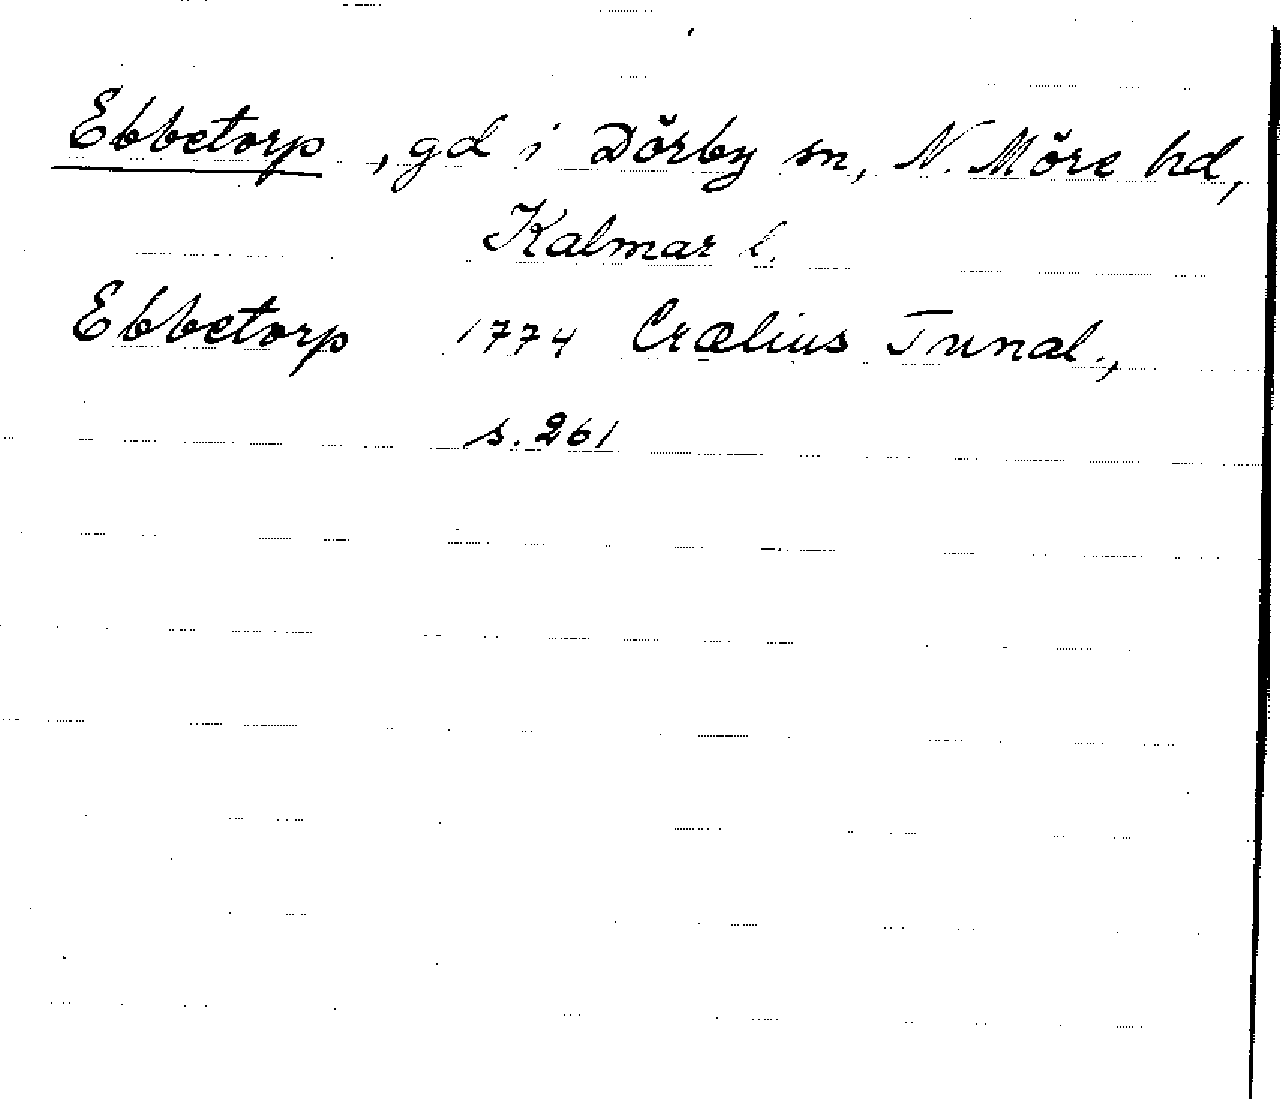 Ebbetorp, gd i Dörby sn, N. Möre hd,
Kalmar l.
Ebbetorp 1774 Crælius Tunal.,
s. 261